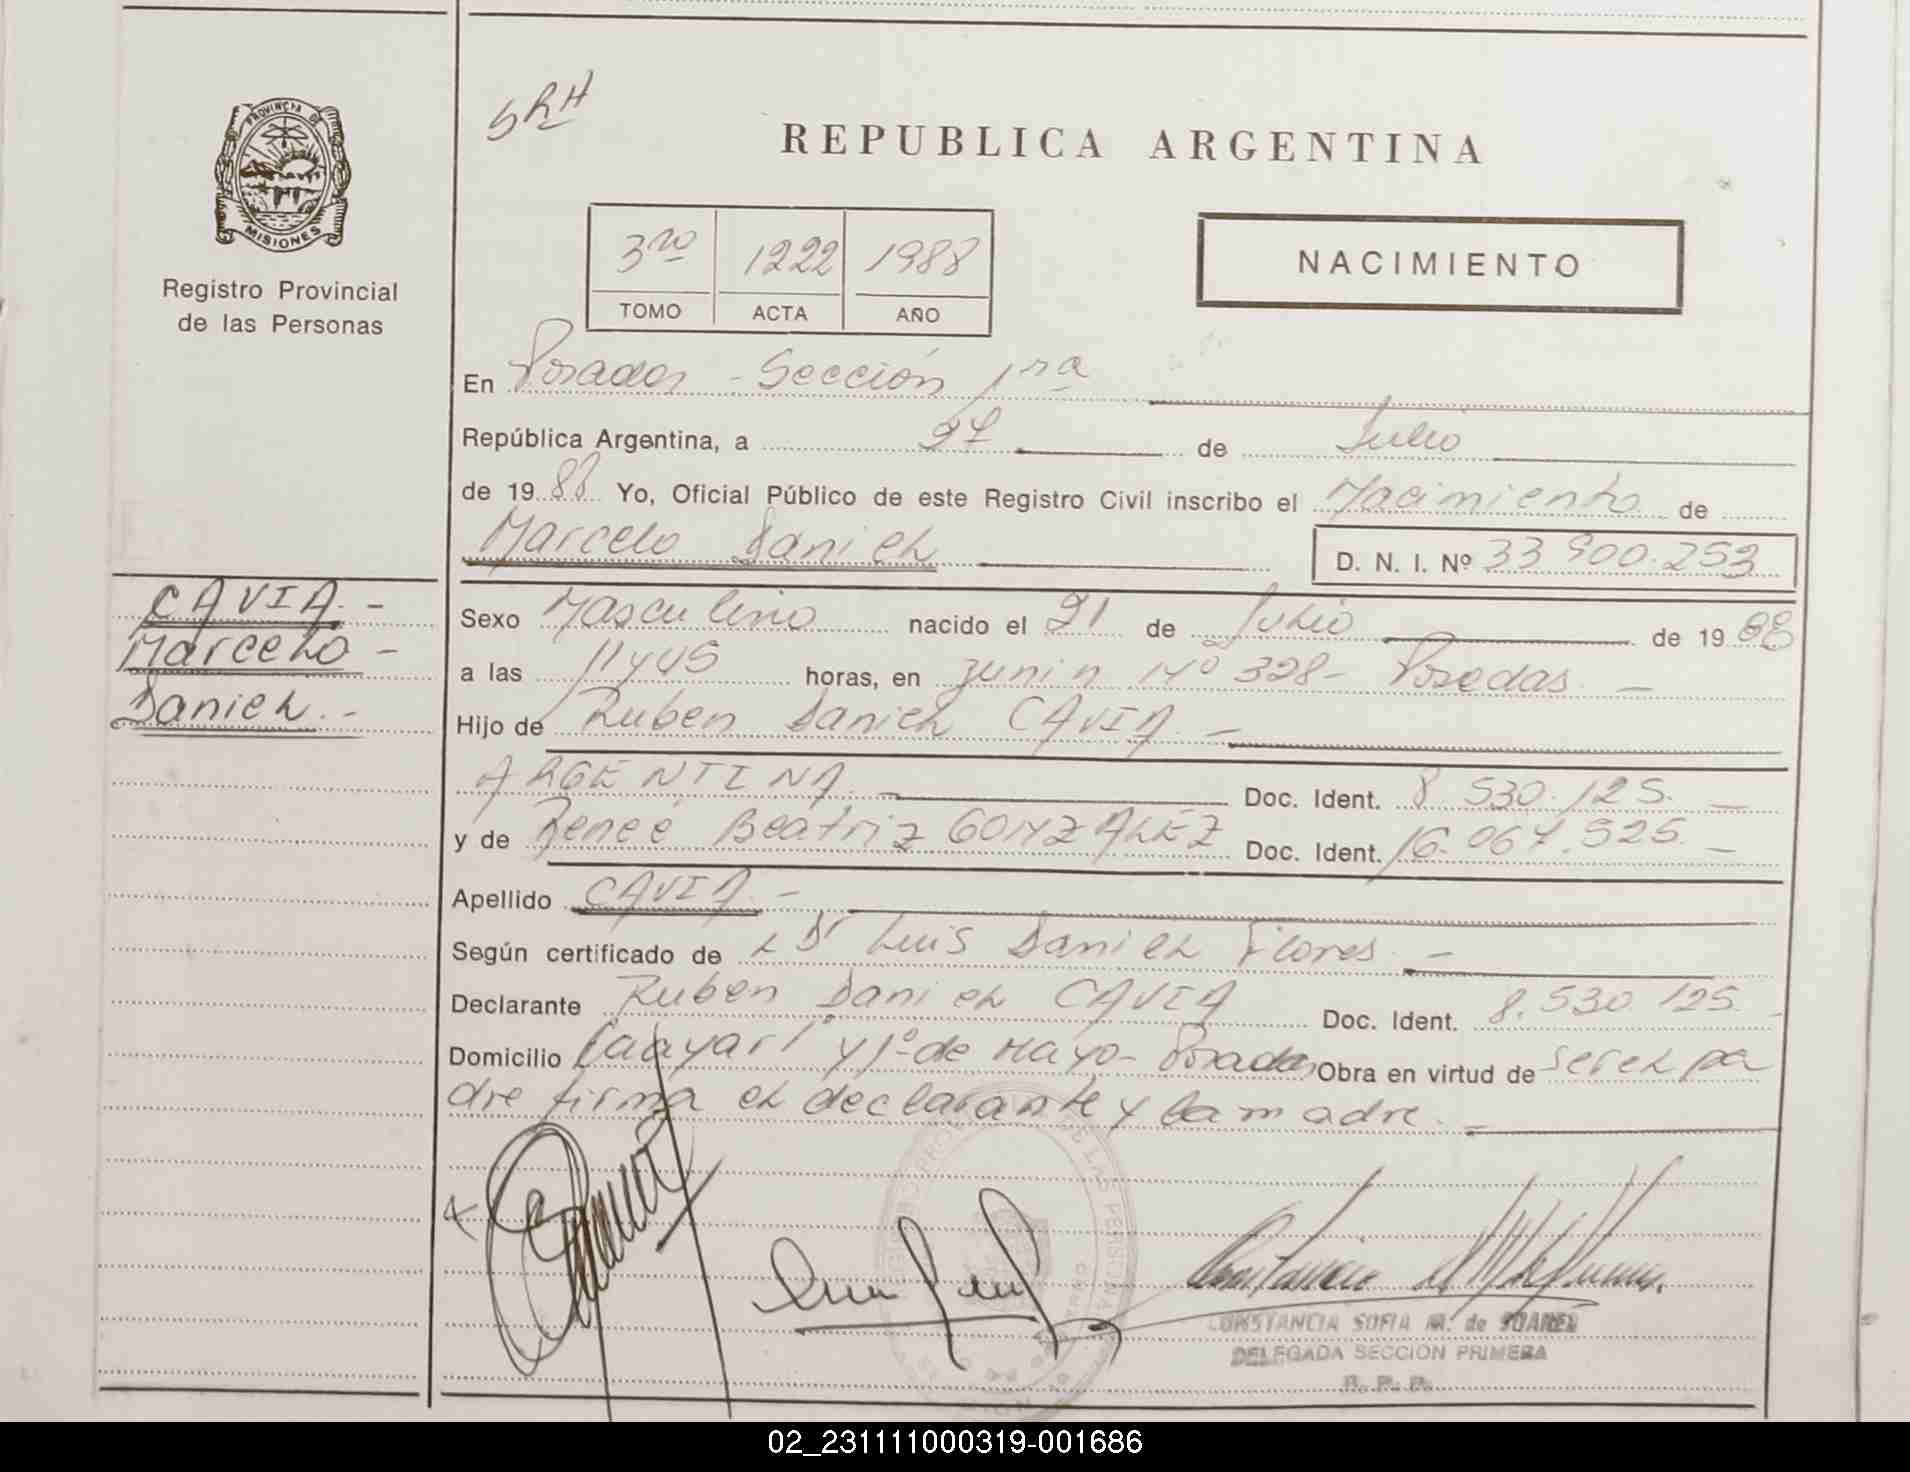 PROVINCIA DE
MISIONES
Registro Provincial
de las Personas
CAVIA.-
Marcelo -
Daniel.-
SRH
REPUBLICA ARGENTINA
3ro 1222 1988
TOMO ACTA AÑO
NACIMIENTO
En Posadas - Sección 1ra
República Argentina, a 27 de Julio
de 1988 Yo, Oficial Público de este Registro Civil inscribo el Nacimiento de
Marcelo Daniel D. N. I. Nº 33.900.253
Sexo Masculino nacido el 21 de Julio de 1988
a las 11y45 horas, en Junin Nº 328- Posadas. -
Hijo de Ruben Daniel CAVIA. -
ARGENTINA. - Doc. Ident. 8.530.125. -
y de Reneé Beatriz GONZALEZ Doc. Ident. 16.067.525. -
Apellido CAVIA. -
Según certificado de Dr Luis Daniel Flores. -
Declarante Ruben Daniel CAVIA Doc. Ident. 8.530.125. -
Domicilio y 1º de Mayo- Posadas Obra en virtud de ser el pa
dre firma el declarante y la madre. -
CONSTANCIA SOFIA M. de SUAREZ
DELEGADA SECCION PRIMERA
R. P. P.
02_231111000319-001686